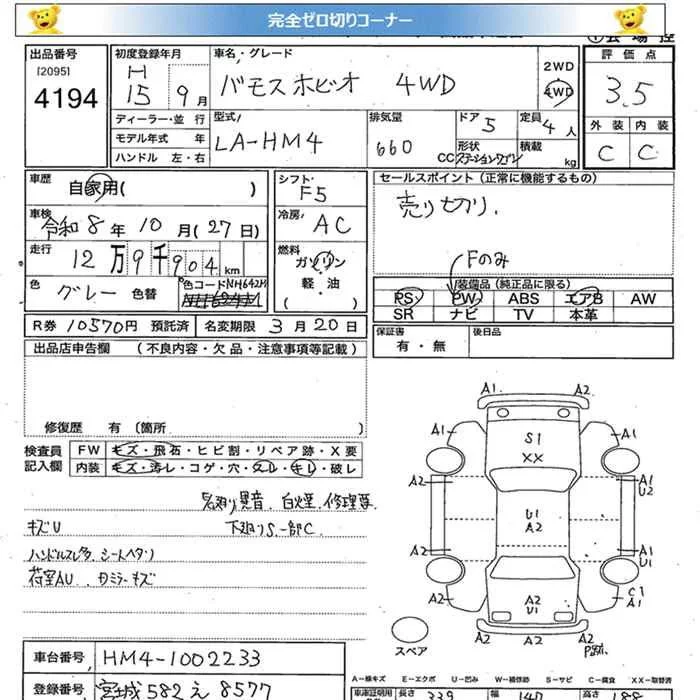 完全ゼロ切りコーナー
出品番号
[2095]
4194
初度登録年月
H
15 9月
車名・グレード
バモスホビオ 4WD
2WD
4WD
評価点
3.5
外装 内装
C C
ディーラー・並行
モデル年式 年
ハンドル 左・右
型式
LA-HM4
排気量
660
CC
ドア 5
形状
ステーションワゴン
定員 4人
積載
kg
車歴
自家用( )
シフト
F5
セールスポイント(正常に機能するもの)
売り切り.
車検
令和8年10月(27日)
冷房
AC
走行
12万9千904km
燃料
ガソリン
・軽・油
( )
Fのみ
色
グレー 色替
色コード NH642M
装備品(純正品に限る)
PS PW ABS エアB AW
SR ナビ TV 本革
R券 10570円 預託済 名変期限 3月20日
保証書
有・無
後日品
出品店申告欄 (不良内容・欠品・注意事項等記載)
修復歴 有(箇所 )
検査員
記入欄
FW キズ・飛石・ヒビ割・リペア跡・X要
内装 キズ・汚レ・コゲ・穴・スレ・キレ・破レ
異音 白煙.修理要
キズU 下廻りS.一部C
ハンドルスレ シートヘタリ
荷室AU .ミラーキズ
A1 A2
A1 A1
S1
XX
A2 A1
U2
U1
A2
A2 A1
U1
A2 C1
A1
A2
U1
A2 A2
スペア
車台番号 HM4-1002233
登録番号 宮城582え8577
A-線キズ E-エクボ U-凹ミ W-補修跡 S-サビ C-腐食 XX-取替済
車庫証明用 長さ 339 幅 147 高さ 188